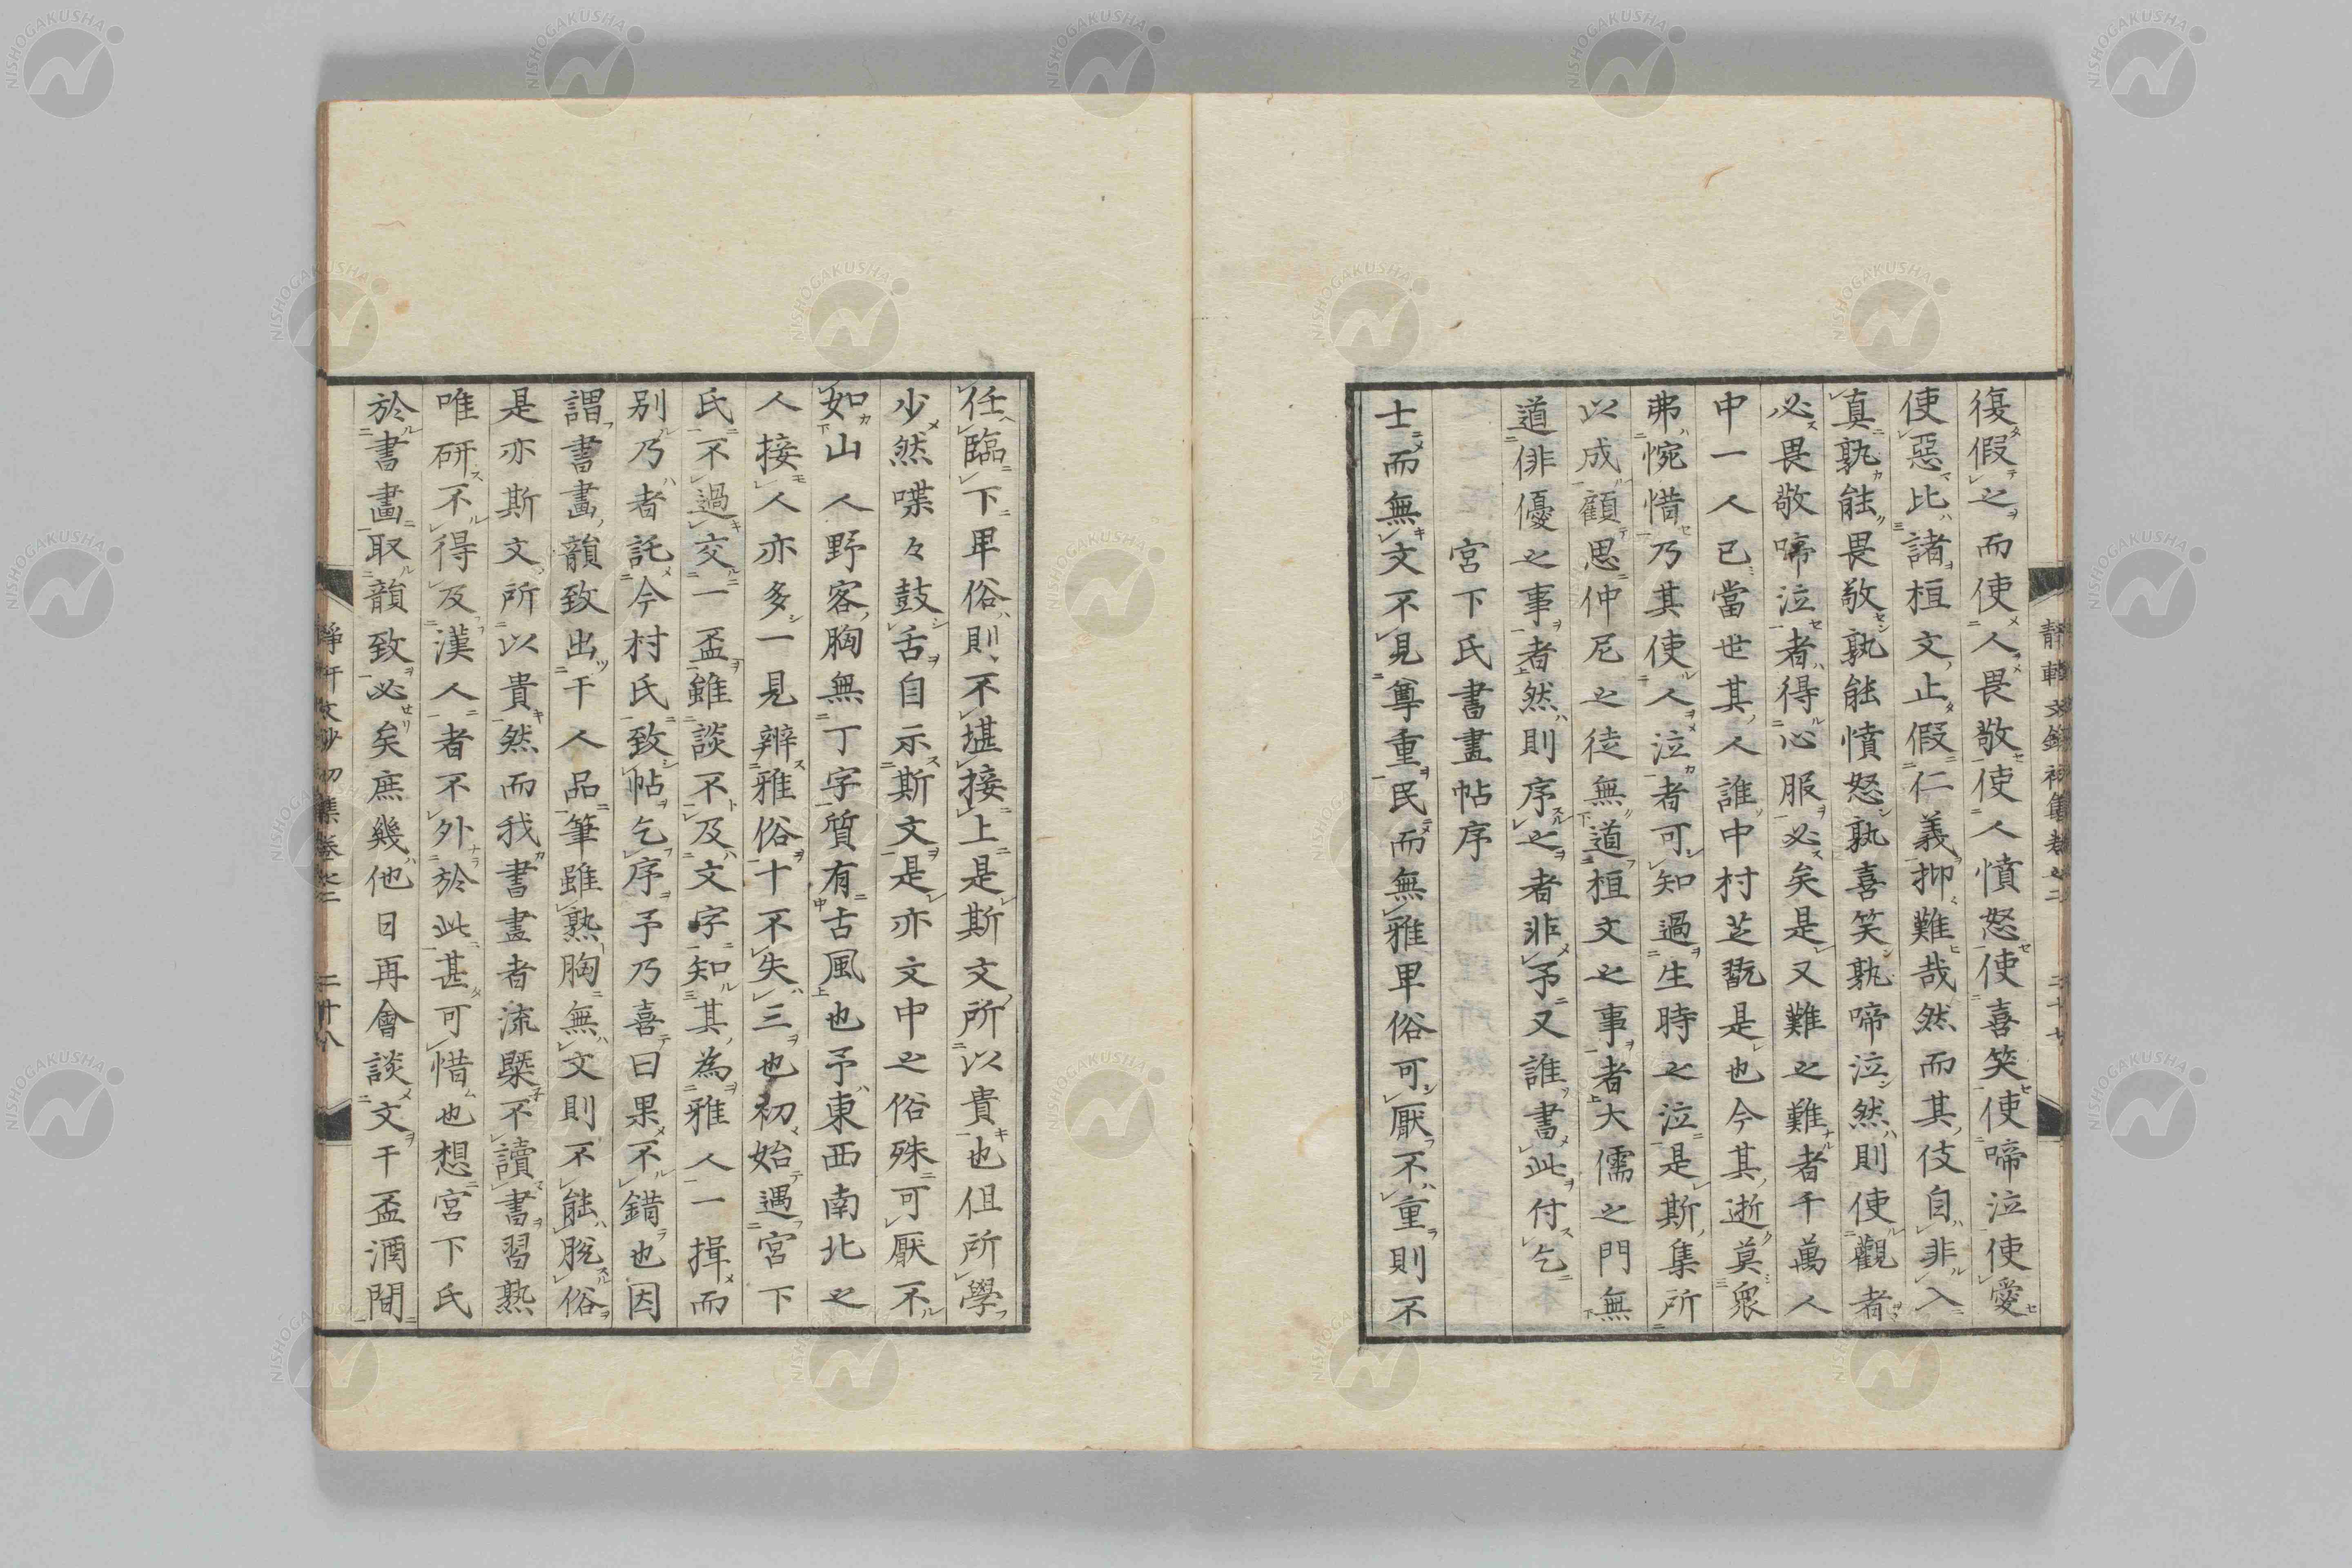 復假之而使人畏敬使人憤怒使喜笑使啼泣使愛
使惡比諸桓文止假仁義抑難哉然而其伎自非入
真孰能畏敬孰能憤怒孰喜笑孰啼泣然則使觀者
必畏敬啼泣者得心服必矣是又難之難者千萬人
中一人已當世其人誰中村芝翫是也今其逝莫衆
弗惋惜乃其使人泣者可知過生時之泣是斯集所
以成顧思仲尼之徒無道桓文之事者大儒之門無
道俳優之事者然則序之者非予又誰書此付乞
宮下氏書畫帖序
士而無文不見尊重民而無雅卑俗可厭不重則不
任臨下卑俗則不堪接上是斯文所以貴也但所學
少然喋々鼓舌自示斯文是亦文中之俗殊可厭不
如山人野客胸無丁字質有古風也予東西南北之
人接人亦多一見辨雅俗十不失三也初始遇宮下
氏不過交一盃雖談不及文字知其為雅人一揖而
別乃者託今村氏致帖乞序予乃喜曰果不錯也因
謂書畫韻致出于人品筆雖熟胸無文則不能脱俗
是亦斯文所以貴然而我書畫者流槩不讀書習熟
唯研不得及漢人者不外於此甚可惜也想宮下氏
於書畫取韻致必矣庶幾他日再會談文于盃酒間